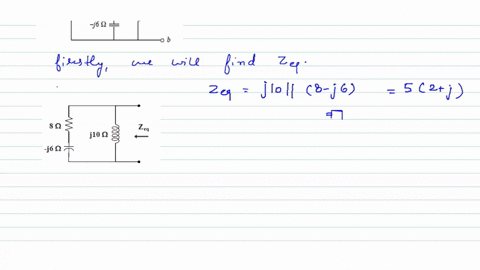 -j6 Ω
b
firstly, we will find Zeq.
Zeq = j10 || (8-j6) = 5(2+j)
8 Ω
j10 Ω
Zeq
-j6 Ω